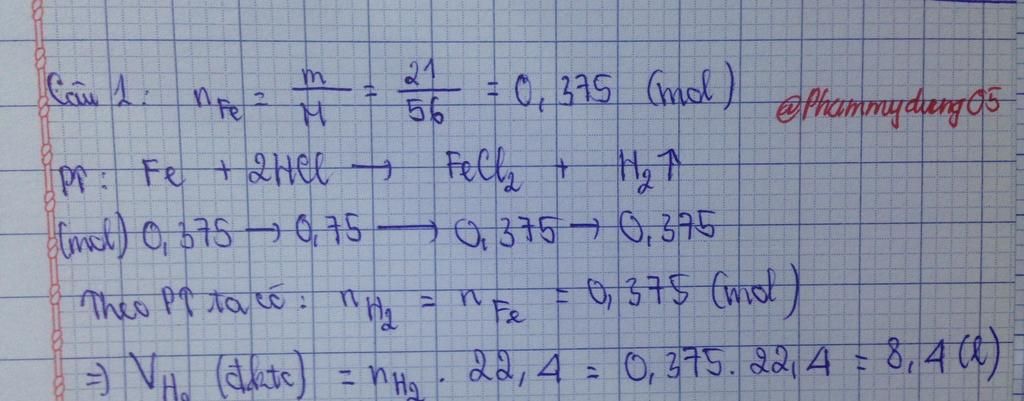 Câu 1: n_Fe = m/M = 21/56 = 0,375 (mol)
@Phammydung05
PT: Fe + 2HCl → FeCl₂ + H₂↑
(mol) 0,375 → 0,75 → 0,375 → 0,375
Theo PT ta có: n_H₂ = n_Fe = 0,375 (mol)
=> V_H₂ (đktc) = n_H₂ . 22,4 = 0,375. 22,4 = 8,4 (l)